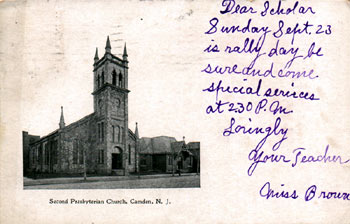 Dear Scholar
Sunday Sept. 23
is rally day be
sure and come
special services
at 2.30 P.M
Lovingly
Your Teacher
Miss Brown
Second Presbyterian Church, Camden, N. J.